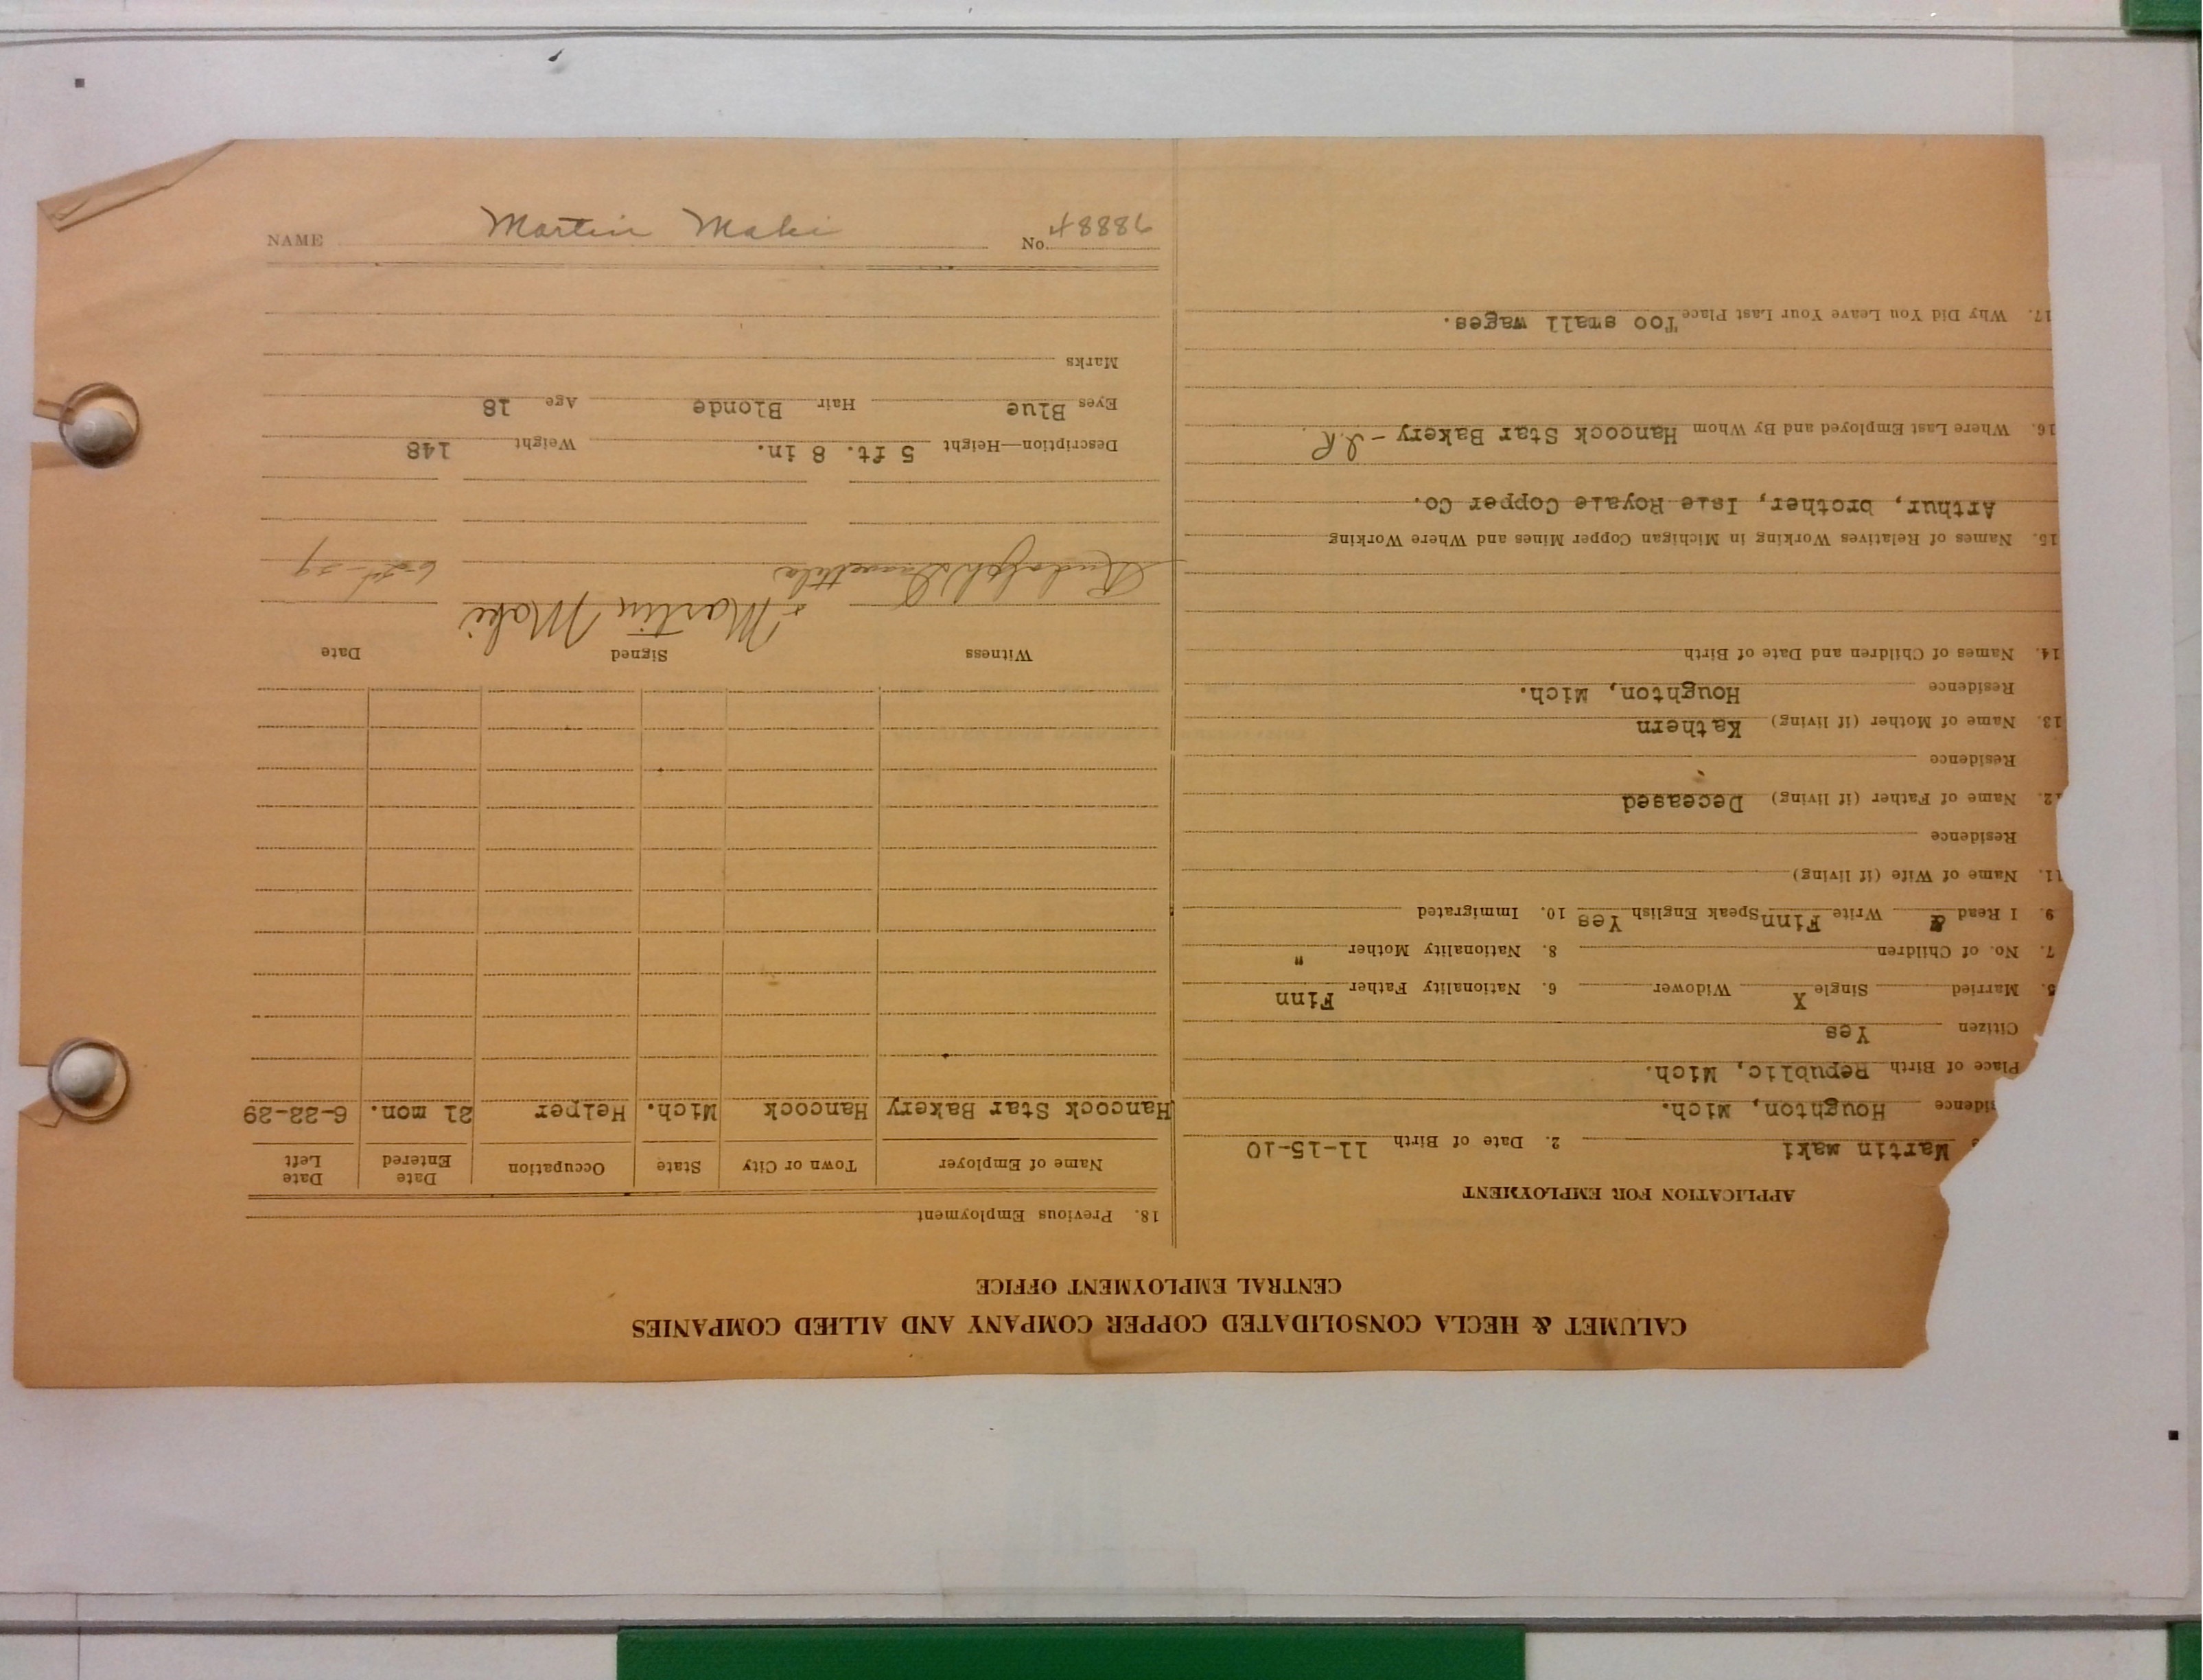 CALUMET & HECLA CONSOLIDATED COPPER COMPANY AND ALLIED COMPANIES
CENTRAL EMPLOYMENT OFFICE
APPLICATION FOR EMPLOYMENT
Martin Maki 2. Date of Birth 11-15-10
Houghton, Mich.
Place of Birth Republic, Mich.
Citizen Yes
5. Married Single X Widower 6. Nationality Father Finn
7. No. of Children 8. Nationality Mother "
9. I Read & Write Finn Speak English Yes 10. Immigrated
11. Name of Wife (if living)
Residence
12. Name of Father (if living) Deceased
Residence
13. Name of Mother (if living) Kathern
Residence Houghton, Mich.
14. Names of Children and Date of Birth
15. Names of Relatives Working in Michigan Copper Mines and Where Working
Arthur, brother, Isle Royale Copper Co.
16. Where Last Employed and By Whom Hancock Star Bakery - I.R.
17. Why Did You Leave Your Last Place Too small wages.
18. Previous Employment
Name of Employer Town or City State Occupation Date Entered Date Left
Hancock Star Bakery Hancock Mich. Helper 21 mon. 6-22-29
Witness Signed Date
Martin Maki
Rudolph
Description—Height 5 ft. 8 in. Weight 148
Eyes Blue Hair Blonde Age 18
Marks
NAME Martin Maki No. 48886